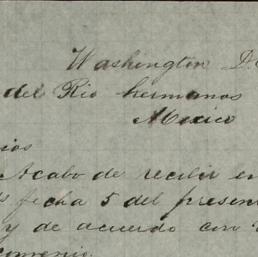 Washington D.
del Rio hermanos
Mexico
ios
Acabo de recibir en
fecha 5 del presen
y de acuerdo con
convenio